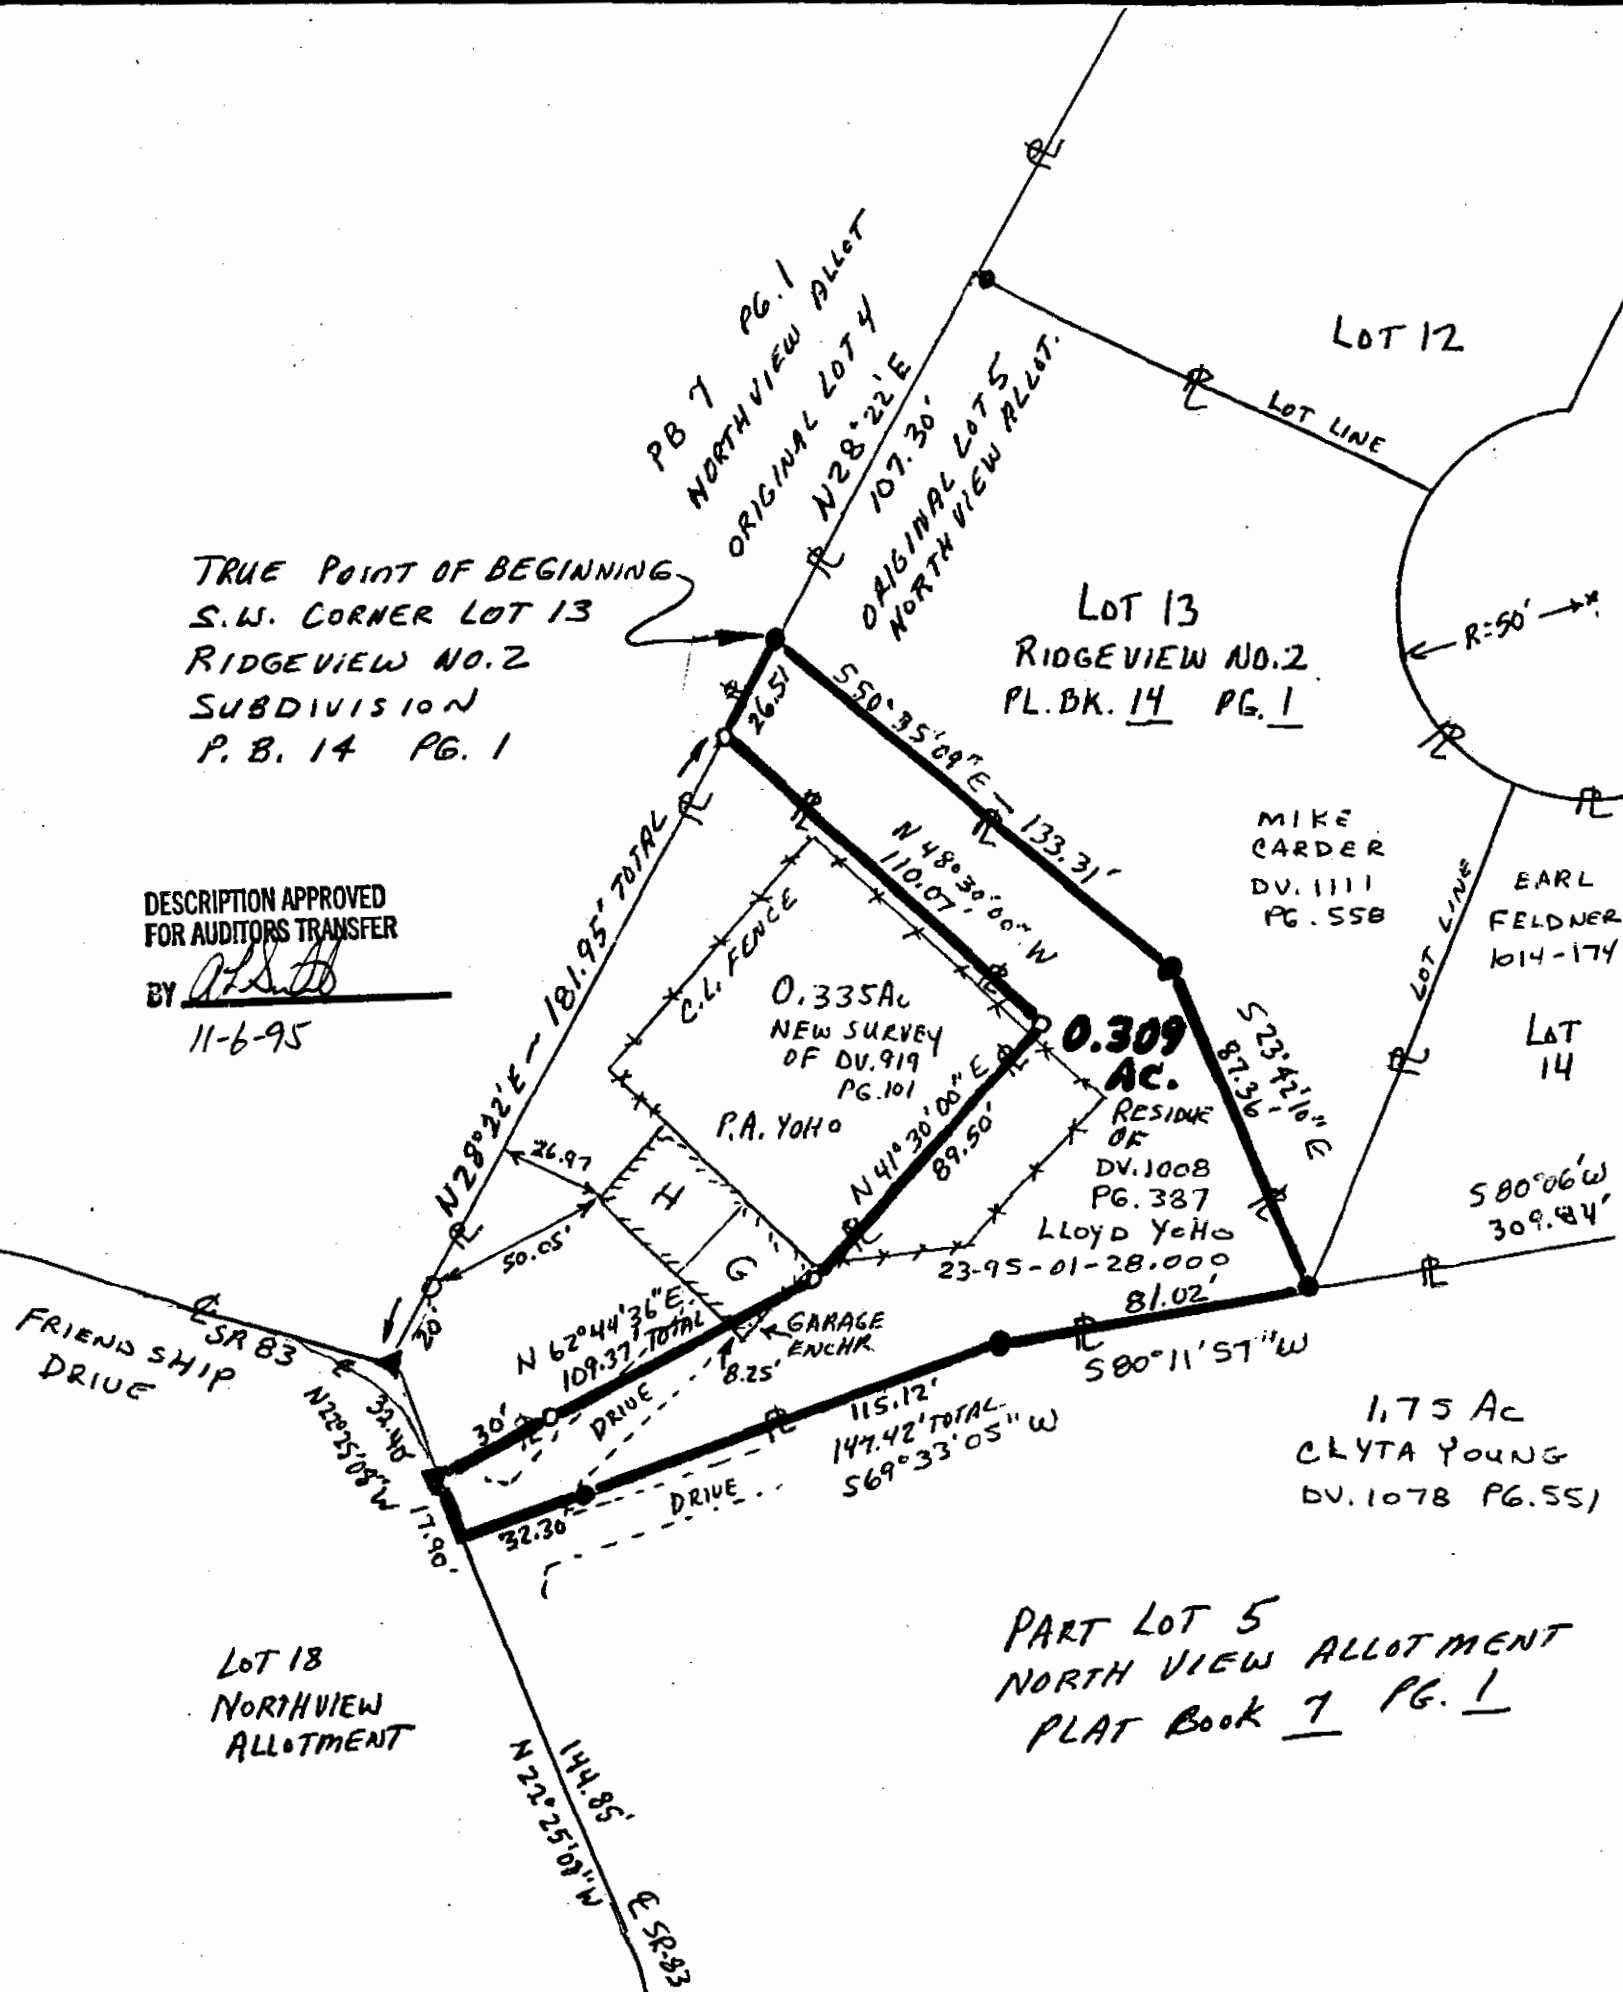 PB 7 PG. 1
NORTHVIEW ALLOT
ORIGINAL LOT 4
N28°22'E
107.30'
ORIGINAL LOT 5
NORTH VIEW ALLOT.
LOT 12
LOT LINE
TRUE POINT OF BEGINNING
S.W. CORNER LOT 13
RIDGEVIEW NO. 2
SUBDIVISION
P. B. 14 PG. 1
LOT 13
RIDGEVIEW NO. 2
PL. BK. 14 PG. 1
R=50'
26.51
S 50°35'09" E — 133.31'
N 48°30'00" W
110.07'
MIKE
CARDER
DV. 1111
PG. 558
LOT LINE
EARL
FELDNER
1014-174
LOT
14
DESCRIPTION APPROVED
FOR AUDITORS TRANSFER
BY
11-6-95
N28°22'E — 181.95' TOTAL
C.L. FENCE
0.335 Ac
NEW SURVEY
OF DV. 919
PG. 101
P.A. YOHO
0.309
AC.
S 23°42'10" E
87.36'
RESIDUE
OF
DV. 1008
PG. 387
LLOYD YOHO
23-95-01-28.000
N 41°30'00" E
89.50'
S 80°06'W
309.84'
26.97
50.05'
H
G
20'
81.02'
S 80°11'57" W
GARAGE
ENCHR
8.25'
N 62°44'36" E
109.37' TOTAL
30'
DRIVE
℄ SR 83
FRIENDSHIP
DRIVE
32.40
N22°25'08" W
17.90'
32.30'
DRIVE
115.12'
147.42' TOTAL
S69°33'05" W
1.75 Ac
CLYTA YOUNG
DV. 1078 PG. 551
LOT 18
NORTHVIEW
ALLOTMENT
PART LOT 5
NORTH VIEW ALLOTMENT
PLAT BOOK 7 PG. 1
144.85'
N 22°25'08" W
℄ SR-83